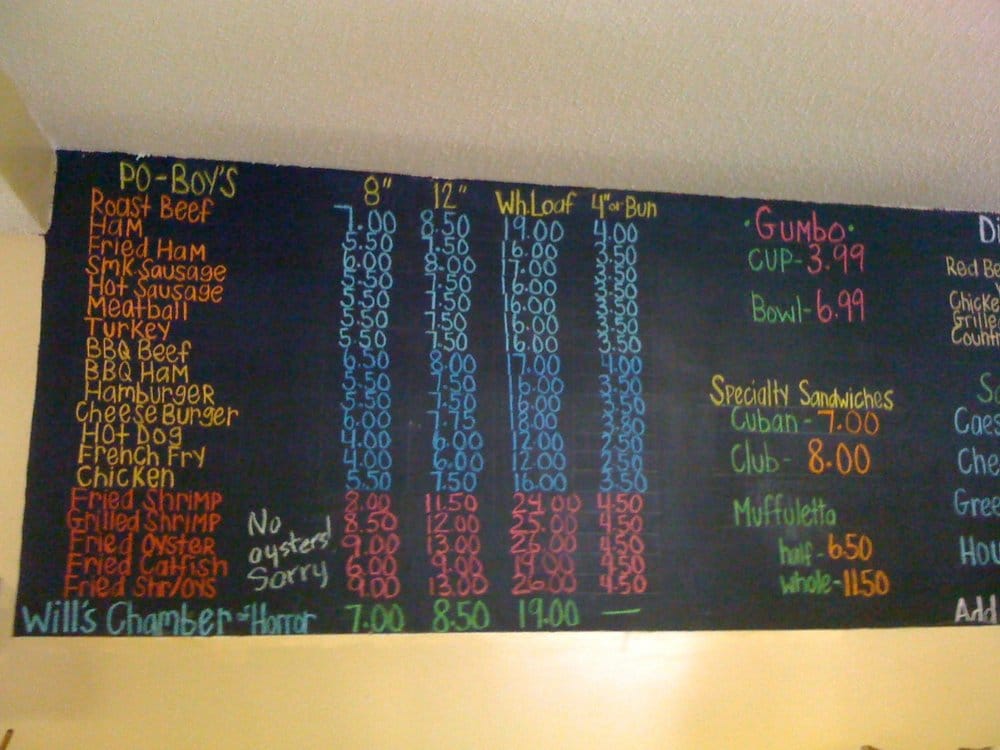 PO-BOY'S 8" 12" Wh.Loaf 4" or Bun
Roast Beef 7.00 8.50 19.00 4.00
Ham 5.50 7.50 16.00 3.50
Fried Ham 6.00 8.00 17.00 3.50
Smk.Sausage 5.50 7.50 16.00 3.50
Hot Sausage 5.50 7.50 16.00 3.50
Meatball 5.50 7.50 16.00 3.50
Turkey 5.50 7.50 16.00 3.50
BBQ Beef 6.50 8.00 17.00 4.00
BBQ Ham 5.50 7.50 16.00 3.50
Hamburger 5.50 7.50
Cheese Burger 6.00 7.75
Hot Dog 4.00 6.00 12.00 2.50
French Fry 4.00 6.00 12.00 2.50
Chicken 5.50 7.50 16.00 3.50
Fried Shrimp 8.00 11.50 24.00 4.50
Grilled Shrimp 8.50 12.00 25.00 4.50
Fried Oyster 9.00 13.00 26.00 4.50
Fried Catfish 6.00 9.00 19.00 4.50
Fried Shr/Oys 9.00 13.00 26.00 4.50
No
oysters!
Sorry
Will's Chamber of Horror 7.00 8.50 19.00 —
·Gumbo·
CUP-3.99
Bowl-6.99
Specialty Sandwiches
Cuban-7.00
Club-8.00
Muffuletta
half-6.50
whole-11.50
Di
Red Be
Chicke
Grille
Count
Sa
Caes
Che
Gree
Hou
Add